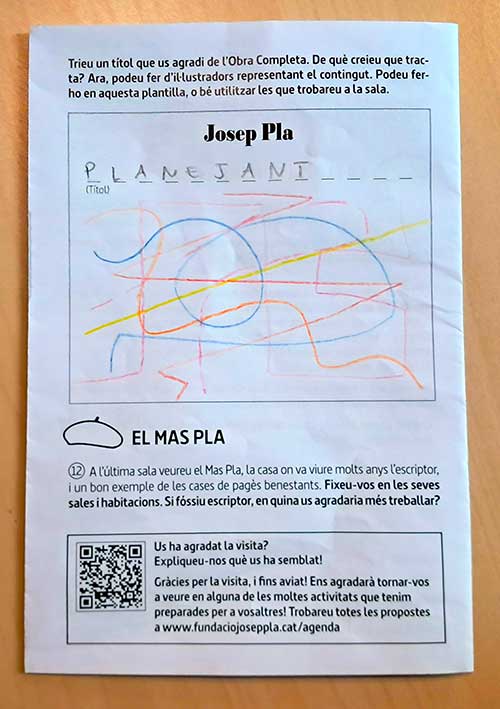 Trieu un títol que us agradi de l'Obra Completa. De què creieu que trac-
ta? Ara, podeu fer d'il·lustradors representant el contingut. Podeu fer-
ho en aquesta plantilla, o bé utilitzar les que trobareu a la sala.
Josep Pla
PLANEJANT
(Títol)
EL MAS PLA
12 A l'última sala veureu el Mas Pla, la casa on va viure molts anys l'escriptor,
i un bon exemple de les cases de pagès benestants. Fixeu-vos en les seves
sales i habitacions. Si fóssiu escriptor, en quina us agradaria més treballar?
Us ha agradat la visita?
Expliqueu-nos què us ha semblat!
Gràcies per la visita, i fins aviat! Ens agradarà tornar-vos
a veure en alguna de les moltes activitats que tenim
preparades per a vosaltres! Trobareu totes les propostes
a www.fundaciojoseppla.cat/agenda